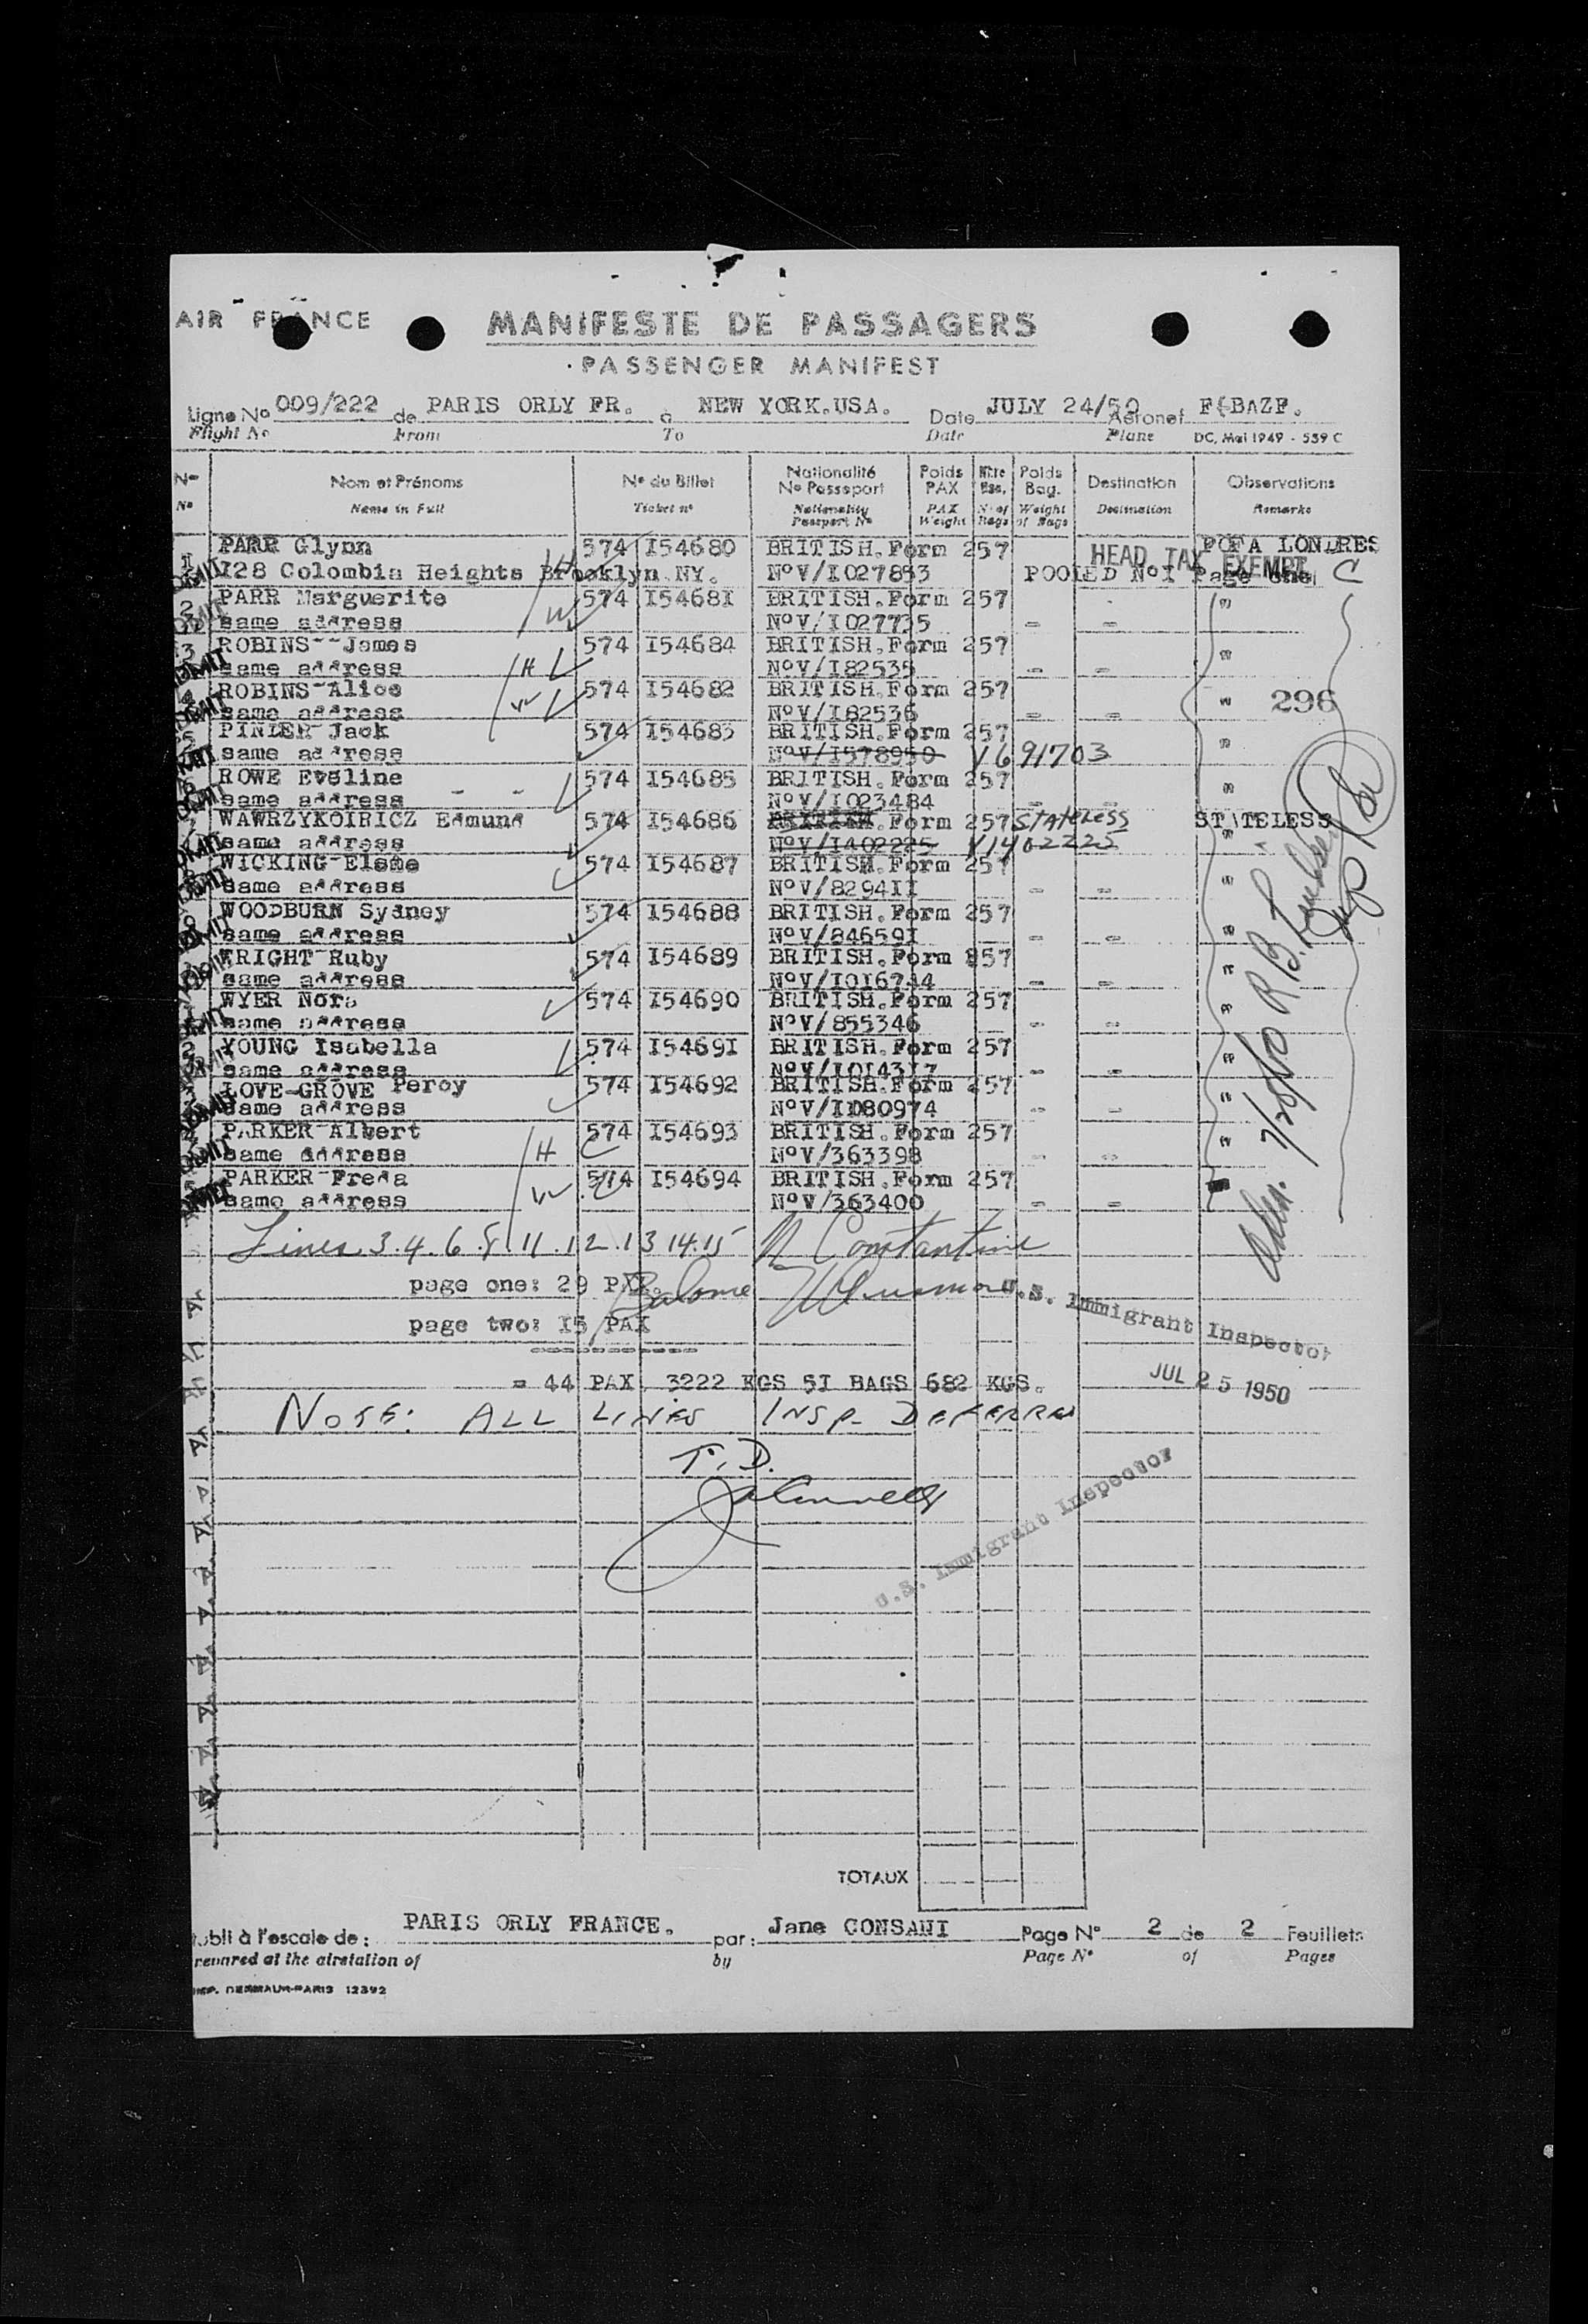 AIR FRANCE
MANIFESTE DE PASSAGERS
PASSENGER MANIFEST
Ligne No 009/222 de PARIS ORLY FR. à NEW YORK.USA. Date JULY 24/50 Aéronef F-BAZF.
Flight No From To Date Plane DC, Mai 1949 - 559 C
No Nom et Prénoms No du Billet Nationalité No Passeport Poids PAX Poids Bag. Destination Observations
No Name in Full Ticket no Nationality Passport No PAX Weight No of Bags Weight of Bags Destination Remarks
1 PARR Glynn 574 I54680 BRITISH.Form 257 POFA LONDRES
128 Colombia Heights Brooklyn NY. NoV/I027853 POOLED NoI Page one C
HEAD TAX EXEMPT
2 PARR Marguerite 574 I54681 BRITISH.Form 257 "
same address NoV/I027735 - -
3 ROBINS James 574 I54684 BRITISH.Form 257 "
same address H NoV/I82535 - -
4 ROBINS Alice 574 I54682 BRITISH.Form 257 " 296
same address W NoV/I82536 - -
5 PINLER Jack 574 I54683 BRITISH.Form 257 "
same address NoV/I578950 V691703
6 ROWE Eveline 574 I54685 BRITISH.Form 257 "
same address NoV/I023484 - -
7 WAWRZYKOIRICZ Edmund 574 I54686 BRITISH.Form 257 STATELESS STATELESS
same address NoV/I402225 V1402225 "
8 WICKING Elsme 574 I54687 BRITISH.Form 257 "
same address NoV/8294II - -
9 WOODBURN Sydney 574 I54688 BRITISH.Form 257 "
same address NoV/84659I - -
WRIGHT Ruby 574 I54689 BRITISH.Form 257 "
same address NoV/I016744 - -
WYER Nora 574 I54690 BRITISH.Form 257 "
same address NoV/855346 - -
YOUNG Isabella 574 I5469I BRITISH.Form 257 "
same address NoV/I0143I7 - -
LOVE-GROVE Percy 574 I54692 BRITISH.Form 257 "
same address NoV/I080974 - -
PARKER Albert 574 I54693 BRITISH.Form 257 "
same address H NoV/363398 - -
PARKER Freda 574 I54694 BRITISH.Form 257
same address W NoV/363400 - -
Lines 3.4.6.8.11.12.13 14.15 Constantine
page one: 29 PAX.
U.S. Immigrant Inspector
page two: I5 PAX
= 44 PAX 3222 KGS 5I BAGS 682 KGS.
JUL 25 1950
NOTE: ALL LINES INSP. DEFERRED
T.D.
U.S. Immigrant Inspector
TOTAUX
établi à l'escale de: PARIS ORLY FRANCE. par: Jane CONSANI Page No 2 de 2 Feuillets
prepared at the airstation of by Page No of Pages
IMP. DERMAUX-PARIS 12392